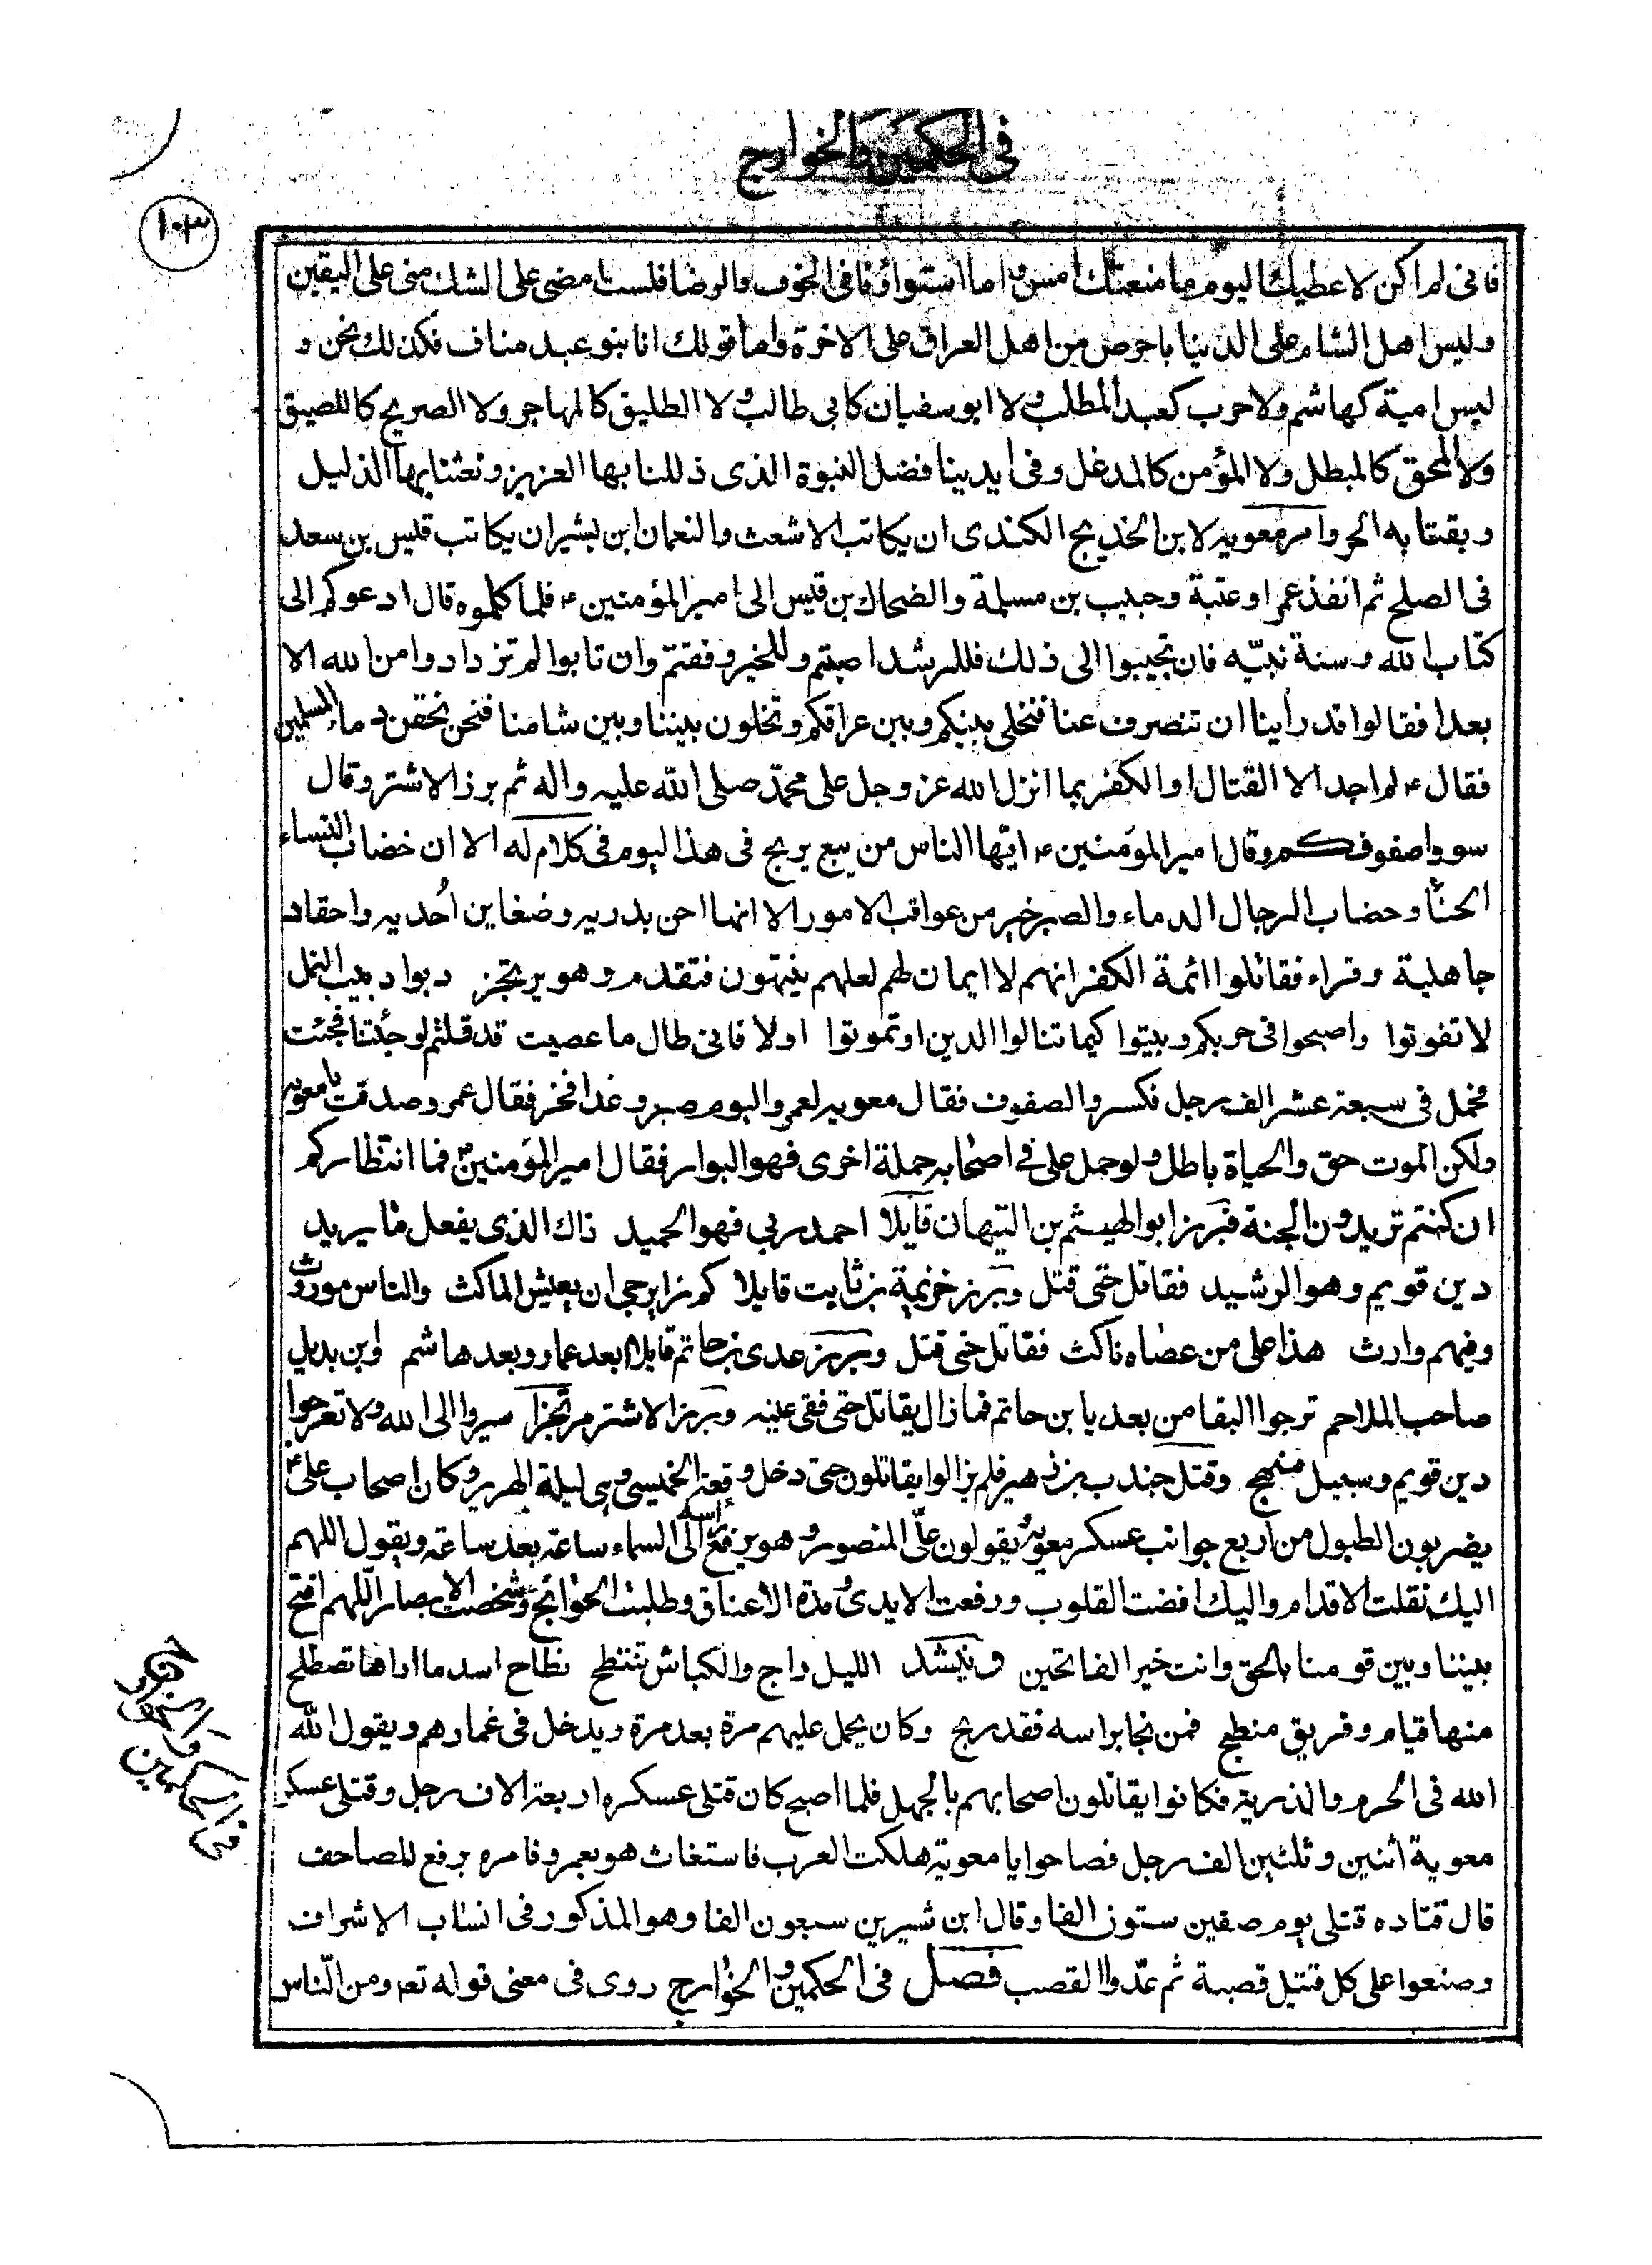 فى الحكمين والخوارج
١٠٣
فانى لم اكن لاعطيك اليوم ما منعتك امس واما استواؤنا فى الخوف والرضا فلست امضى على الشك منى على اليقين
وليس اهل الشام على الدنيا باحرص من اهل العراق على الاخرة واما قولك انا بنو عبد مناف فكذلك نحن و
ليس امية كهاشم ولا حرب كعبد المطلب ولا ابو سفيان كابى طالب ولا الطليق كالمهاجر ولا الصريح كاللصيق
ولا المحق كالمبطل ولا المؤمن كالمدغل وفى ايدينا فضل النبوة الذى ذللنا بها العزيز ونعشنا بها الذليل
وبقنا به الحر وامر معوية لابن الخديج الكندى ان يكاتب الاشعث والنعمان ابن بشير ان يكاتب قيس بن سعد
فى الصلح ثم انفذ عمرا وعتبة وحبيب بن مسلمة والضحاك بن قيس الى امير المؤمنين ع فلما كلموه قال ادعوكم الى
كتاب الله وسنة نبيّه فان تجيبوا الى ذلك فللرشد اصبتم وللخير وفقتم وان تابوا لم تزدادوا من الله الا
بعدا فقالوا قد رأينا ان تنصرف عنا فنخلى بينكم وبين عراقكم وتخلون بيننا وبين شامنا فنحن نحقن دماء المسلمين
فقال ع لم اجد الا القتال او الكفر بما انزل الله عز وجل على محمّد صلى الله عليه واله ثم برز الاشتر وقال
سووا صفوفكم وقال امير المؤمنين ع ايّها الناس من يبع يربح فى هذا اليوم فى كلام له الا ان خضاب النساء
الحنّا وخضاب الرجال الدماء والصبر خير من عواقب الامور الا انها احن بدريه وضغاين اُحديه واحقاد
جاهلية وقراء فقاتلوا ائمة الكفر انهم لا ايمان لهم لعلهم ينتهون فتقدم وهو يرتجز دبوا دبيب النمل
لا تفوتوا واصبحوا فى حربكم وبيتوا كيما تنالوا الدين او تموتوا اولا فانى طال ما عصيت قد قلتم لو جئتنا فجئت
فحمل فى سبعة عشر الف رجل فكسروا الصفوف فقال معويه لعمر واليوم صبر وغدا فخر فقال عمرو صدقت يا معوية
ولكن الموت حق والحياة باطل ولو حمل على فى اصحابه حملة اخرى فهو البوار فقال امير المؤمنين ع فما انتظاركم
ان كنتم تريدون الجنة فبرز ابو الهيثم بن التيهان قايلا احمد ربى فهو الحميد ذاك الذى يفعل ما يريد
دين قويم وهو الرشيد فقاتل حتى قتل وبرز خزيمة بن ثابت قايلا كم ذا يرجى ان يعيش الماكث والناس موروث
وفيهم وارث هذا على من عصاه ناكث فقاتل حتى قتل وبرز عدى بن حاتم قايلا ابعد عمار وبعد هاشم وابن بديل
صاحب الملاحم ترجوا البقا من بعد يا بن حاتم فما زال يقاتل حتى فقى عينه وبرز الاشتر مرتجزا سيروا الى الله ولا تعرجوا
دين قويم وسبيل منهج وقتل جندب بن زهير فلم يزالوا يقاتلون حتى دخل وقعة الخميس وهى ليلة الهرير وكان اصحاب على ع
يضربون الطبول من اربع جوانب عسكر معوية ويقولون علّى المنصور وهو يرفع رأسه الى السماء ساعة بعد ساعة ويقول اللهم
اليك نقلت الاقدام واليك افضت القلوب ورفعت الايدى ومدة الاعناق وطلبت الحوائج وشخصت الابصار اللّهم افتح
بيننا وبين قومنا بالحق وانت خير الفاتحين وينشد الليل داج والكباش تنتطح نطاح اسد ما اراها تصطلح
منها قيام وفريق منطبح فمن نجا براسه فقد ربح وكان يحمل عليهم مرة بعد مرة ويدخل فى غمارهم ويقول الله
الله فى الحرم والذرية فكانوا يقاتلون اصحابهم بالجهل فلما اصبح كان قتلى عسكره اربعة الاف رجل وقتلى عسكر
معوية اثنين وثلثين الف رجل فصاحوا يا معوية هلكت العرب فاستغاث هو بعمرو فامره برفع المصاحف
قال قتاده قتلى يوم صفين ستون الفا وقال ابن شيرين سبعون الفا وهو المذكور فى انساب الاشراف
وصنعوا على كل قتيل قصبة ثم عدّوا القصب فصل فى الحكمين والخوارج روى فى معنى قوله تع ومن النّاس